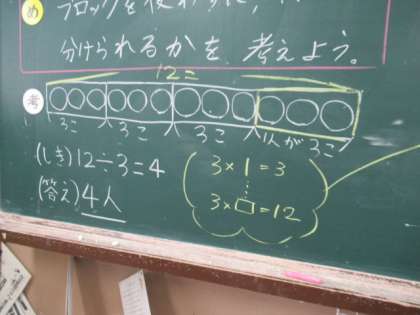 め
ブロックを使わずに、
分けられるかを、考えよう。
12こ
考
3こ 3こ 3こ 1人が3こ
(しき)12÷3=4
(答え)4人
3×1=3
⋮
3×□=12